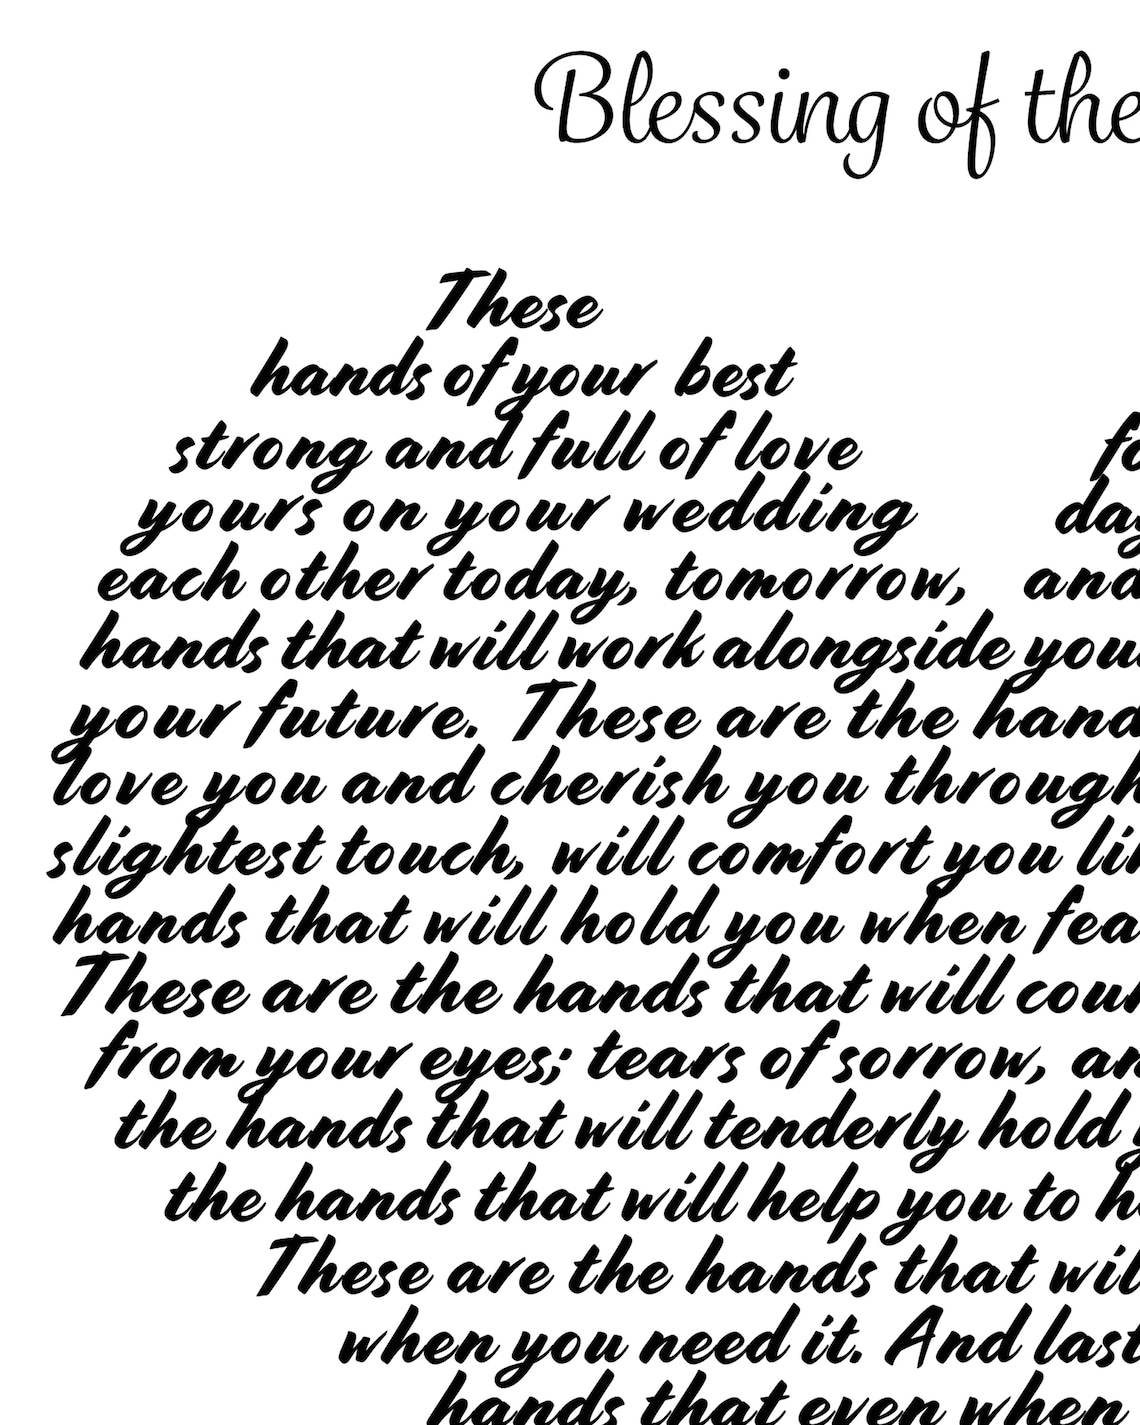 Blessing of the
These
hands of your best
strong and full of love fo
yours on your wedding da
each other today, tomorrow, and
hands that will work alongside you
your future. These are the hand
love you and cherish you through
slightest touch, will comfort you li
hands that will hold you when fea
These are the hands that will coun
from your eyes; tears of sorrow, an
the hands that will tenderly hold y
the hands that will help you to h
These are the hands that wil
when you need it. And last
hands that even when